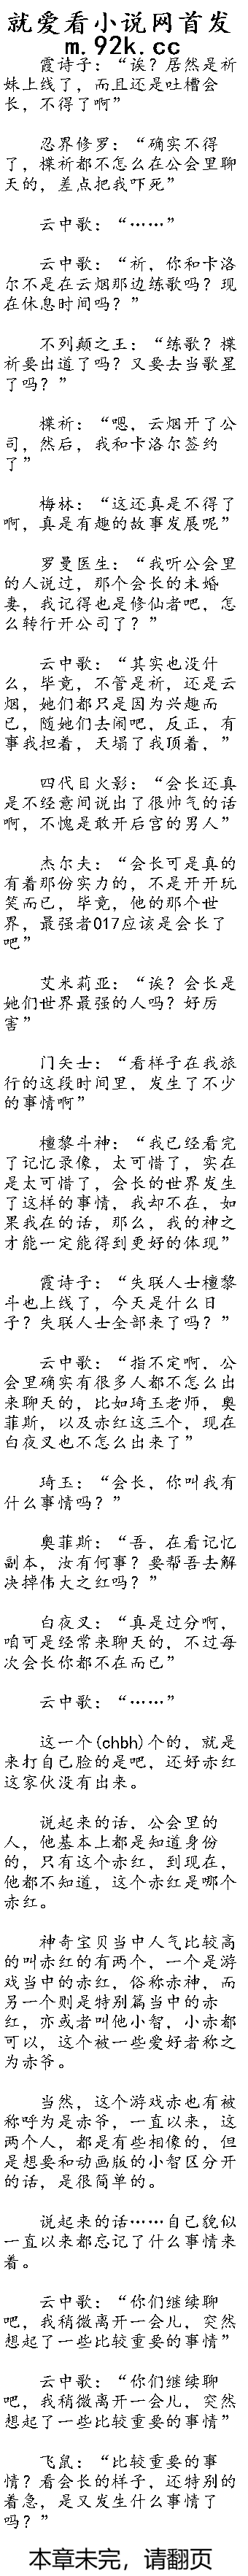 就爱看小说网首发
m.92k.cc
霞诗子：“诶？居然是祈
妹上线了，而且还是吐槽会
长，不得了啊”
忍界修罗：“确实不得
了，楪祈都不怎么在公会里聊
天的，差点把我吓死”
云中歌：“……”
云中歌：“祈，你和卡洛
尔不是在云烟那边练歌吗？现
在休息时间吗？”
不列颠之王：“练歌？楪
祈要出道了吗？又要去当歌星
了吗？”
楪祈：“嗯，云烟开了公
司，然后，我和卡洛尔签约
了”
梅林：“这还真是不得了
啊，真是有趣的故事发展呢”
罗曼医生：“我听公会里
的人说过，那个会长的未婚
妻，我记得也是修仙者吧，怎
么转行开公司了？”
云中歌：“其实也没什
么，毕竟，不管是祈，还是云
烟，她们都只是因为兴趣而
已，随她们去闹吧，反正，有
事我担着，天塌了我顶着，”
四代目火影：“会长还真
是不经意间说出了很帅气的话
啊，不愧是敢开后宫的男人”
杰尔夫：“会长可是真的
有着那份实力的，不是开开玩
笑而已，毕竟，他的那个世
界，最强者017应该是会长了
吧”
艾米莉亚：“诶？会长是
她们世界最强的人吗？好厉
害”
门矢士：“看样子在我旅
行的这段时间里，发生了不少
的事情啊”
檀黎斗神：“我已经看完
了记忆录像，太可惜了，实在
是太可惜了，会长的世界发生
了这样的事情，我却不在，如
果我在的话，那么，我的神之
才能一定能得到更好的体现”
霞诗子：“失联人士檀黎
斗也上线了，今天是什么日
子？失联人士全部来了吗？”
云中歌：“指不定啊，公
会里确实有很多人都不怎么出
来聊天的，比如琦玉老师，奥
菲斯，以及赤红这三个，现在
白夜叉也不怎么出来了”
琦玉：“会长，你叫我有
什么事情吗？”
奥菲斯：“吾，在看记忆
副本，汝有何事？要帮吾去解
决掉伟大之红吗？”
白夜叉：“真是过分啊，
咱可是经常来聊天的，不过每
次会长你都不在而已”
云中歌：“……”
这一个(chbh)个的，就是
来打自己脸的是吧，还好赤红
这家伙没有出来。
说起来的话，公会里的
人，他基本上都是知道身份
的，只有这个赤红，到现在，
他都不知道，这个赤红是哪个
赤红。
神奇宝贝当中人气比较高
的叫赤红的有两个，一个是游
戏当中的赤红，俗称赤神，而
另一个则是特别篇当中的赤
红，亦或者叫他小智，小赤都
可以，这个被一些爱好者称之
为赤爷。
当然，这个游戏赤也有被
称呼为是赤爷，一直以来，这
两个人，都是有些相像的，但
是想要和动画版的小智区分开
的话，是很简单的。
说起来的话……自己貌似
一直以来都忘记了什么事情来
着。
云中歌：“你们继续聊
吧，我稍微离开一会儿，突然
想起了一些比较重要的事情”
云中歌：“你们继续聊
吧，我稍微离开一会儿，突然
想起了一些比较重要的事情”
飞鼠：“比较重要的事
情？看会长的样子，还特别的
着急，是又发生什么事情了
吗？”
本章未完，请翻页